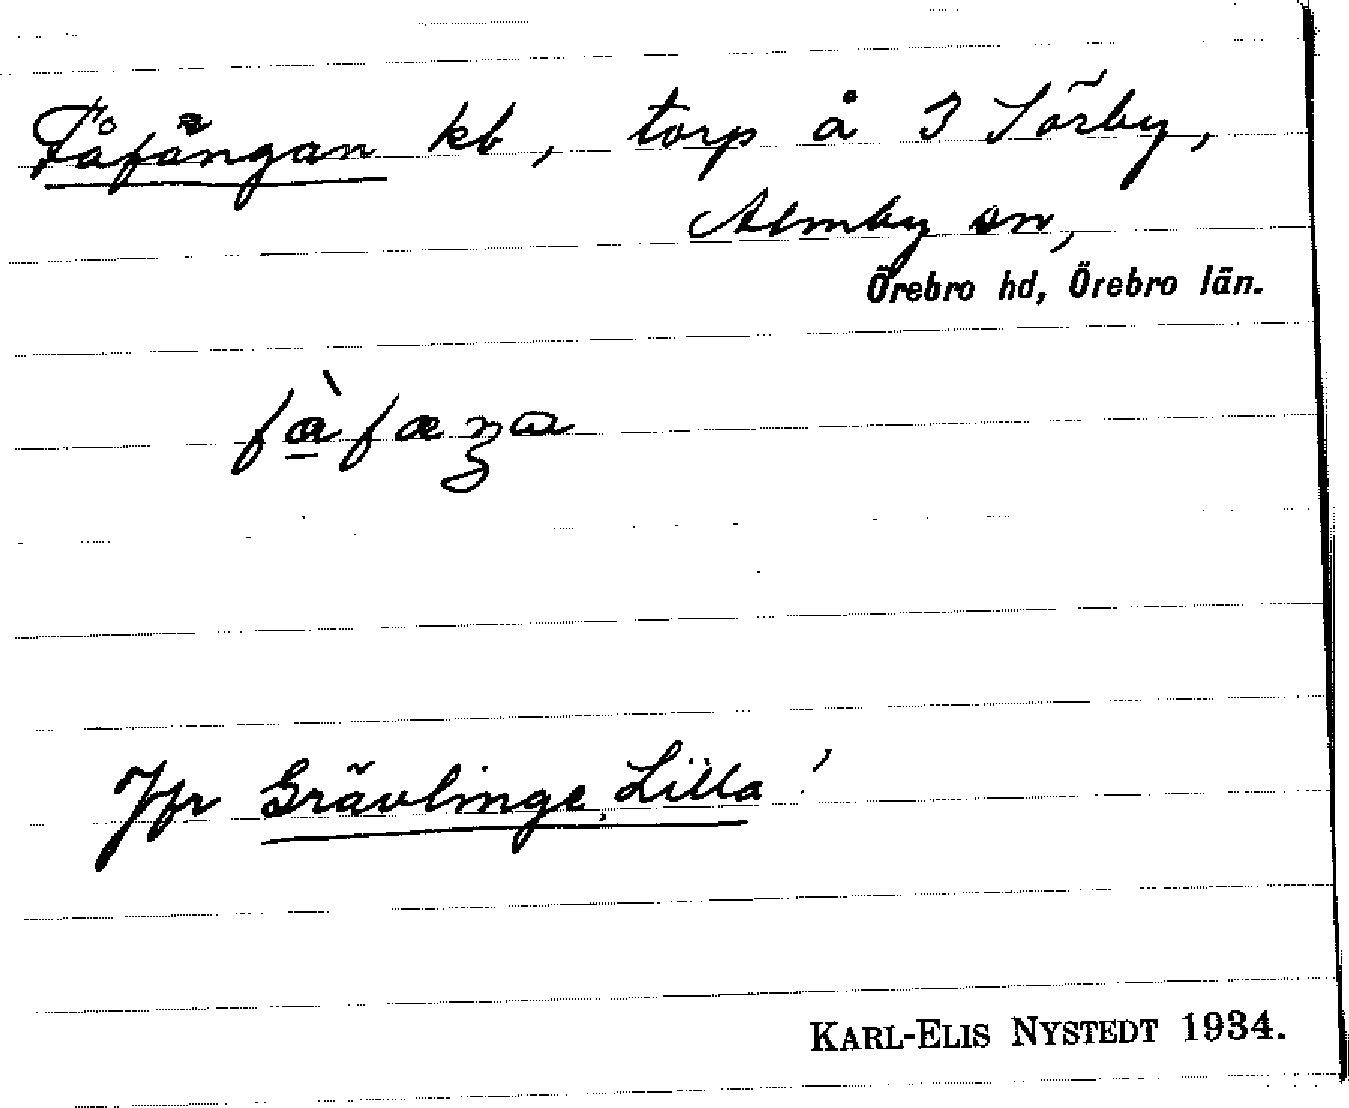 Fåfängan kb, torp å 3 Sörby,
Almby sn,
Örebro hd, Örebro län.
Jfr Grävlinge, Lilla!
KARL-ELIS NYSTEDT 1934.